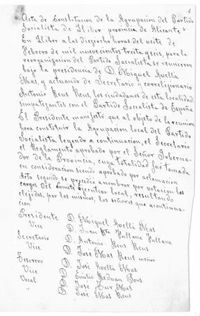 Acta de Constitucion de la Agrupacion del Partido
Socialista de Llíber provincia de Alicante
En Llíber a las diez de la del siete de
Febrero de mil nuevecientos treinta y seis, para la
reorganización del Partido Socialista se reunieron
bajo la presidencia de D. Miguel Avellá
Mas y actuando de Secretario correligionario
Antonio Reus Reus, los ciudadanos de esta localidad
simpatizantes con el Partido Socialista de España
El Presidente manifestó que el objeto de la reunion
era constituir la Agrupacion local del Partido
Socialista leyendo a continuacion, el Secretario
el Reglamento aprobado por el Señor Goberna-
dor de la Provincia, cuya totalidad fue tomada
en consideracion siendo aprobado por aclamacion
Acto seguido se procedio a nombrar por votacion los
cargos del Comité Ejecutivo local, resultando
elegidos, por los mismos, los señores que a continua-
cion
Presidente D. Miguel Avellá Mas
Vice D. Juan
Secretario D. Antonio Reus Reus
Vice D. José Mas
Tesorero D. José Avellá Mas
Vice D. José
Vocal D. José Mas
D. José Mas Reus